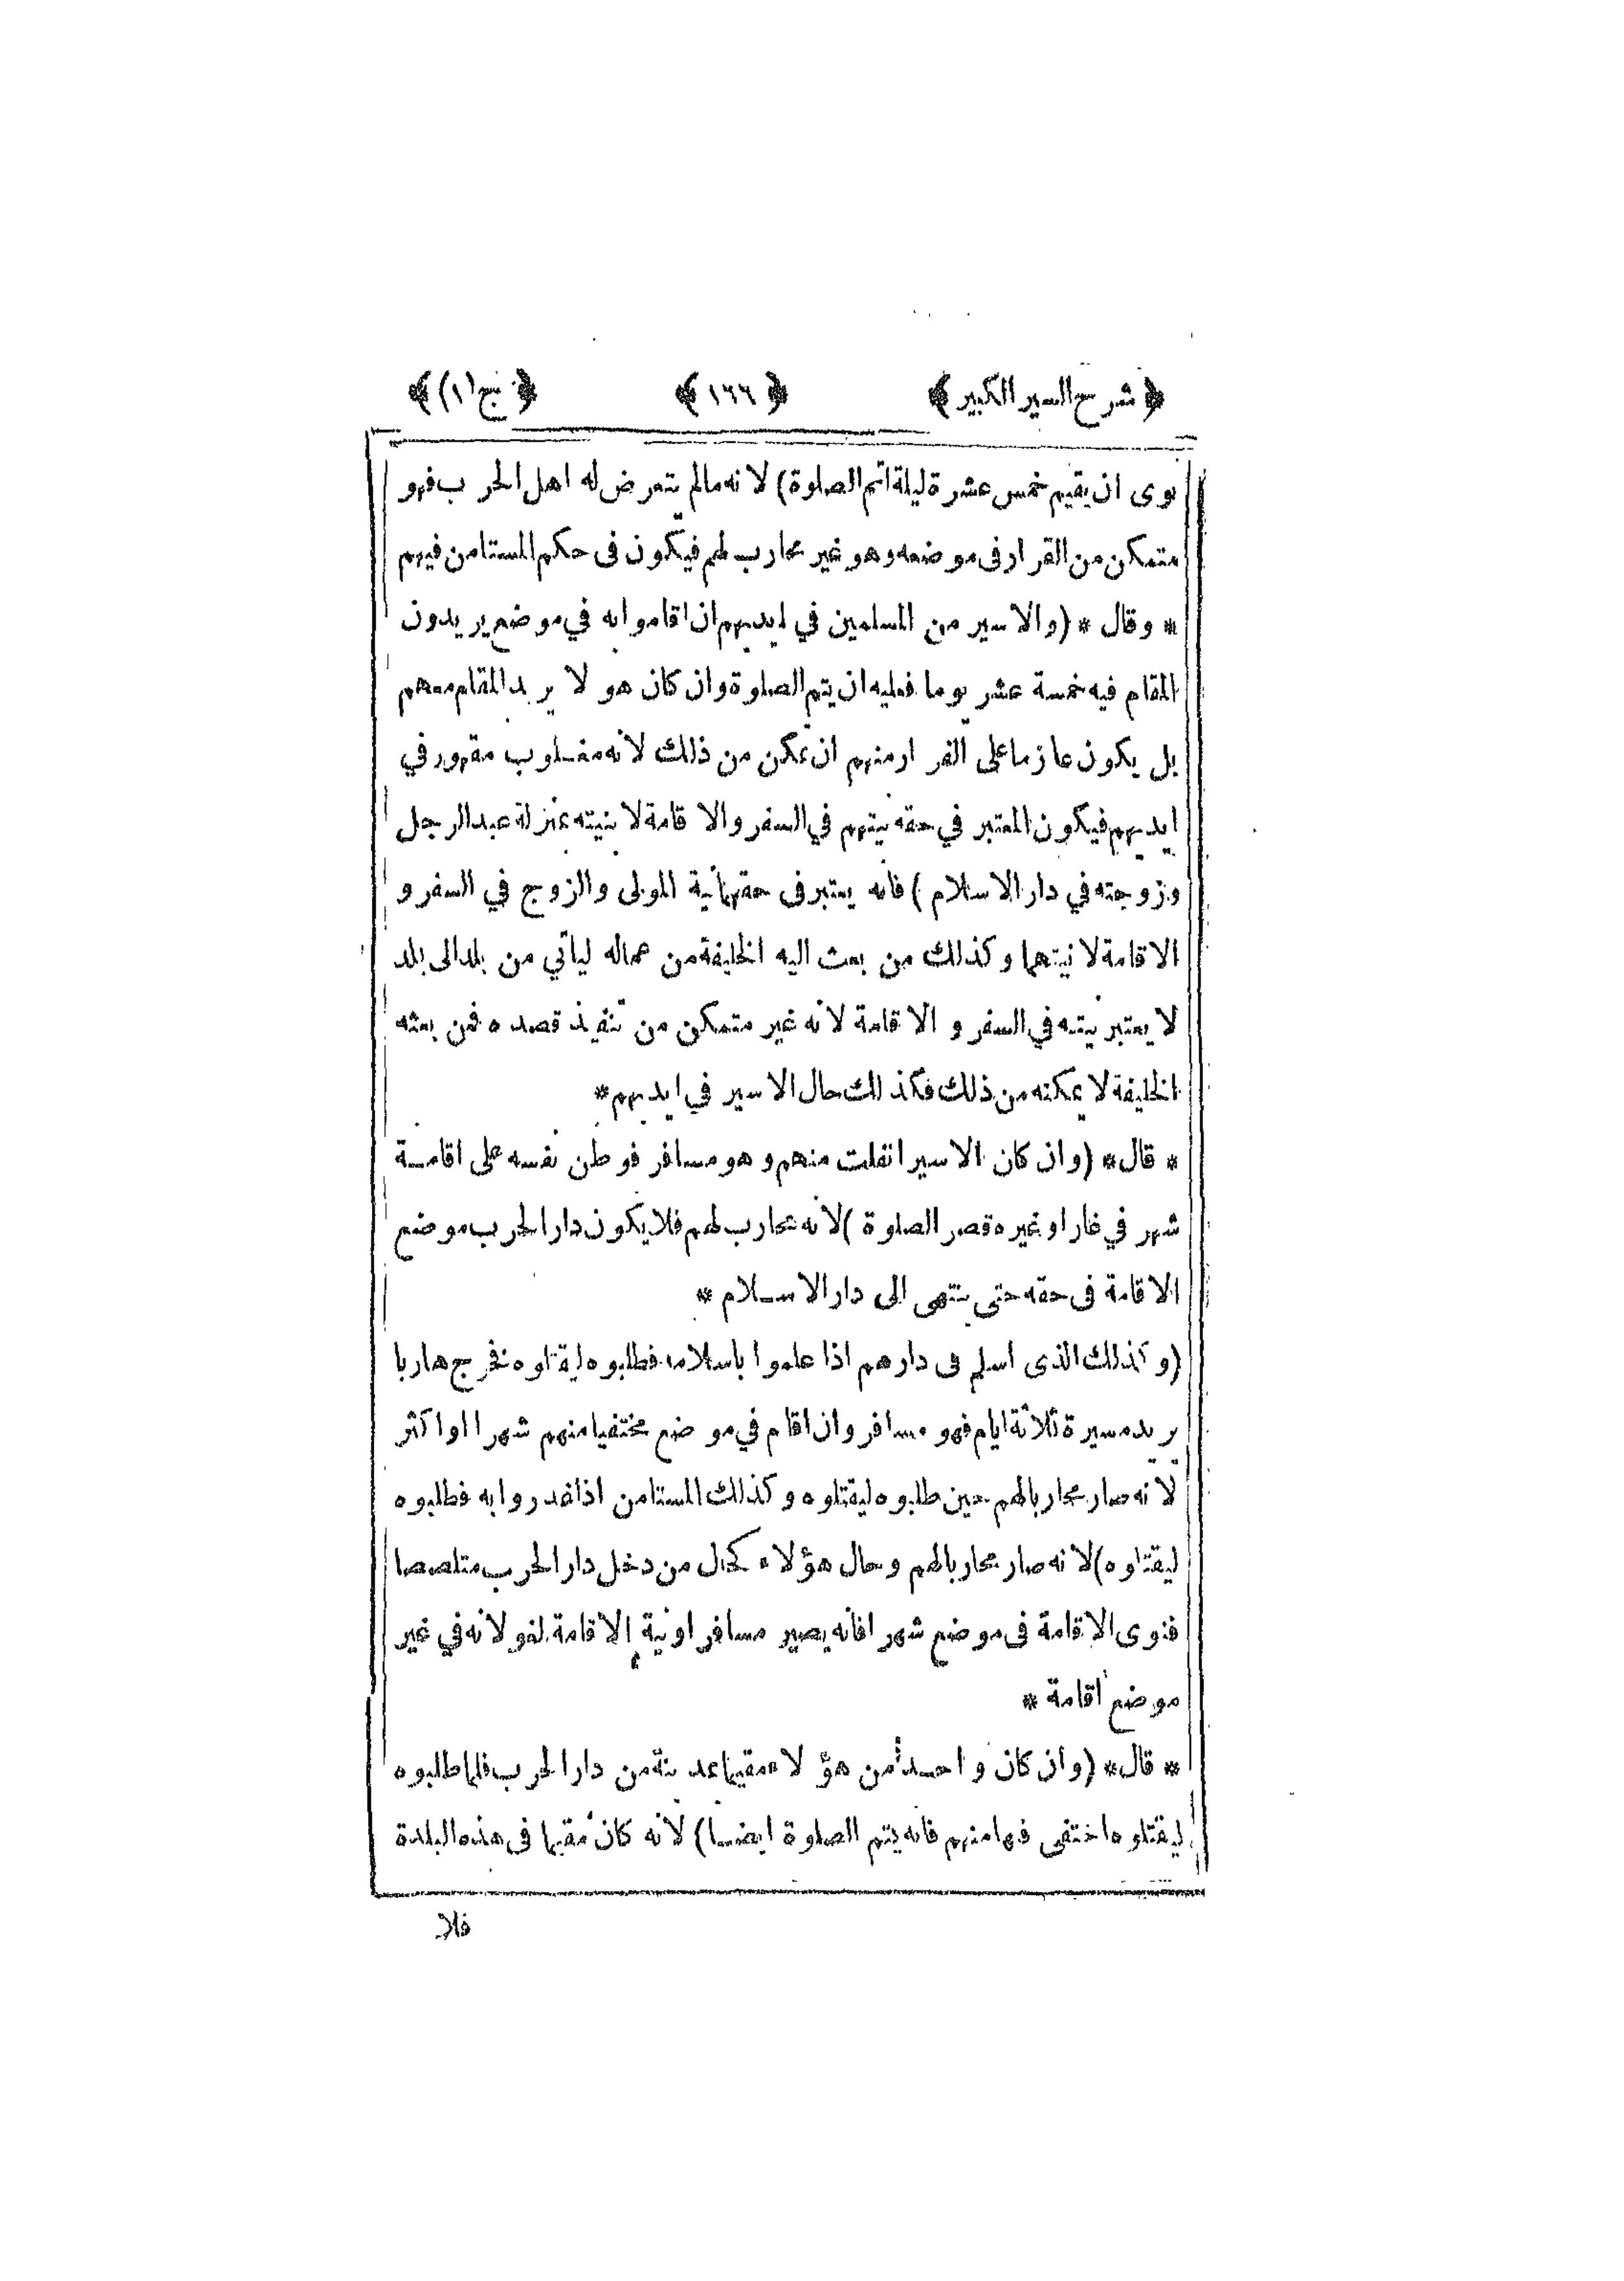 ﴿ شرح السير الكبير ﴾ ﴿ ١٦٦ ﴾ ﴿ ج (١) ﴾
نوى ان يقيم خمس عشرة ليلة اتم الصلوة) لانه مالم يتعرض له اهل الحرب فهو
متمكن من القرار فى موضعه وهو غير محارب لهم فيكون فى حكم المستامن فيهم
* وقال * (والاسير من المسلمين في ايديهم ان اقاموا به في موضع يريدون
المقام فيه خمسة عشر يوما فعليه ان يتم الصلوة وان كان هو لا يريد المقام معهم
بل يكون عازما على الفرار منهم ان تمكن من ذلك لانه مغلوب مقهور في
ايديهم فيكون المعتبر في حقه نيتهم في السفر والاقامة لا نيته بمنزلة عبد الرجل
وزوجته في دار الاسلام) فانه يعتبر فى حقهما نية المولى والزوج في السفر و
الاقامة لا نيتهما وكذلك من بعث اليه الخليفة من عماله لياتي من بلد الى بلد
لا يعتبر نيته في السفر و الاقامة لانه غير متمكن من تنفيذ قصده فمن بعثه
الخليفة لا يمكنه من ذلك فكذلك حال الاسير في ايديهم *
* قال * (وان كان الاسير انفلت منهم وهو مسافر فوطن نفسه على اقامة
شهر في غار او غيره قصر الصلوة) لانه محارب لهم فلا يكون دار الحرب موضع
الاقامة فى حقه حتى ينتهى الى دار الاسلام *
(وكذلك الذى اسلم فى دارهم اذا علموا باسلامه فطلبوه ليقتلوه فخرج هاربا
يريد مسيرة ثلاثة ايام فهو مسافر وان اقام في موضع مختفيا منهم شهرا او اكثر
لانه صار محاربا لهم حين طلبوه ليقتلوه وكذلك المستامن اذا غدروا به فطلبوه
ليقتلوه) لانه صار محاربا لهم وحال هؤلاء كحال من دخل دار الحرب متلصصا
فنوى الاقامة فى موضع شهرا فانه يصير مسافرا ونية الاقامة لغو لانه في غير
موضع اقامة *
* قال * (وان كان واحد من هؤلاء مقيما بمدينة من دار الحرب فلما طلبوه
ليقتلوه اختفى فيها منهم فانه يتم الصلوة ايضا) لانه كان مقيما فى هذه البلدة
فلا